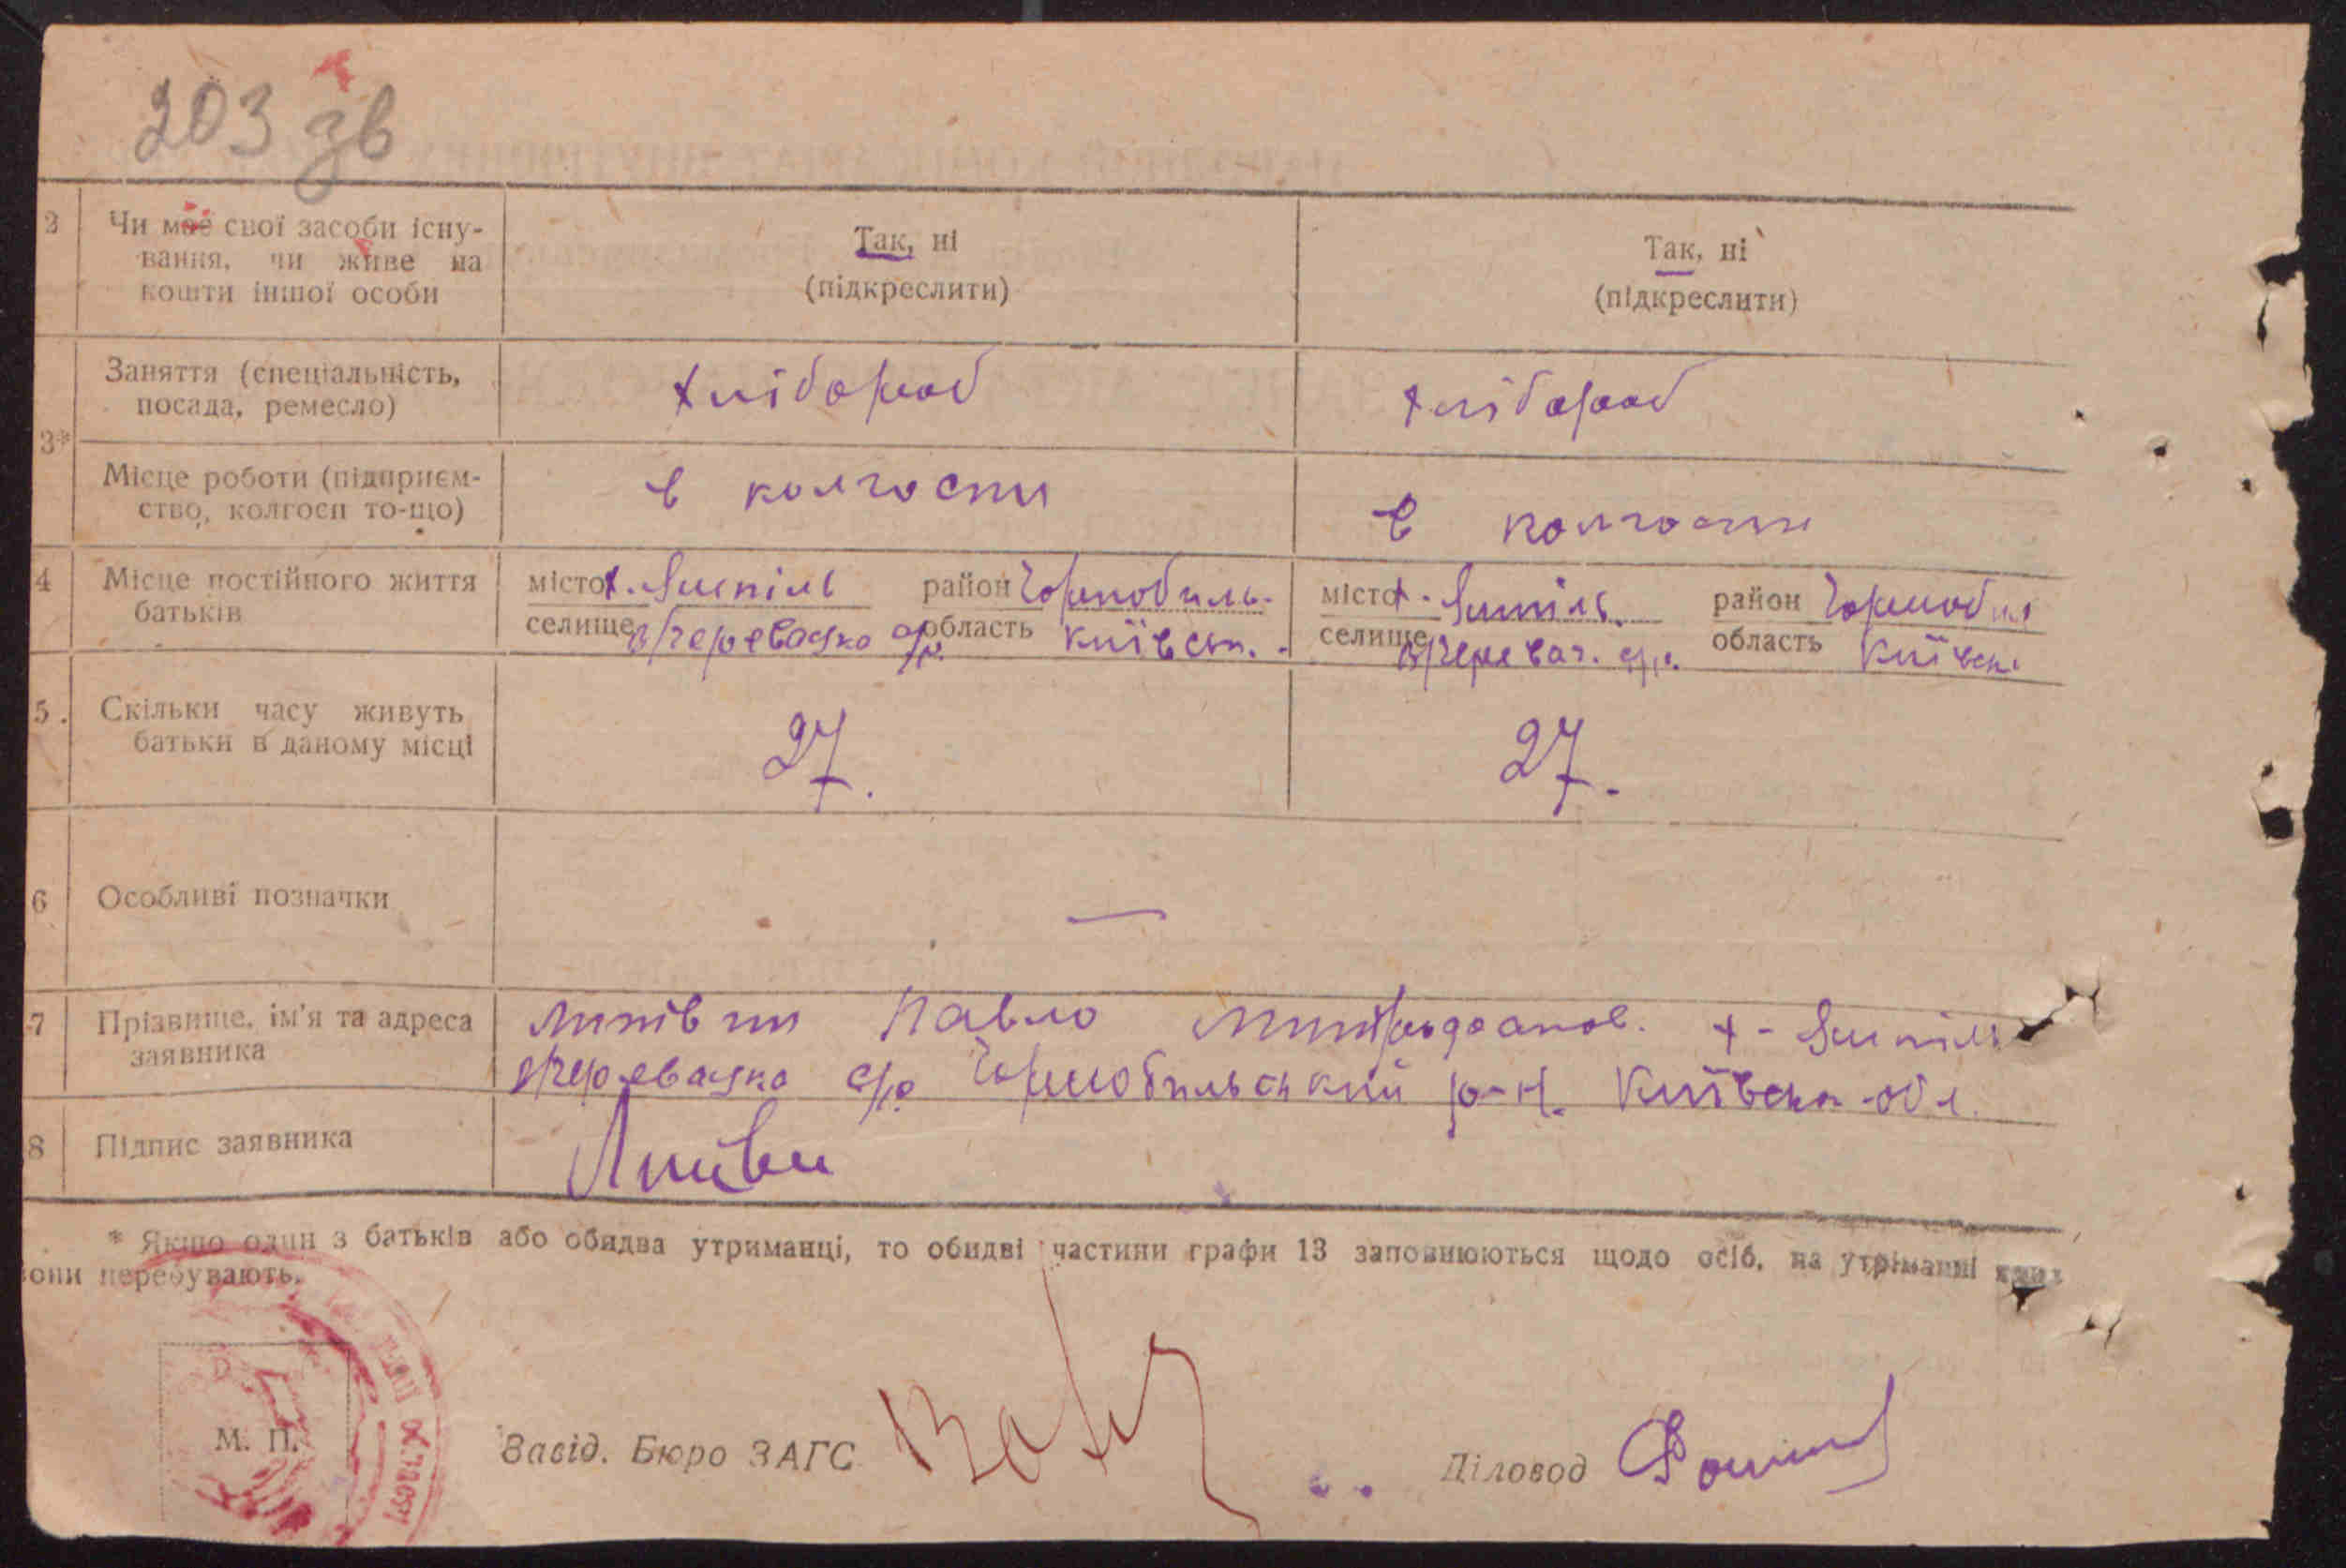 203 зв
2 Чи має свої засоби існу- Так, ні Так, ні
вання, чи живе на (підкреслити) (підкреслити)
кошти іншої особи
Заняття (спеціальність, хлібороб хлібороб
посада, ремесло)
3*
Місце роботи (підприєм- в колгоспи в колгоспи
ство, колгосп то-що)
4 Місце постійного життя місто х. район Чорнобиль. місто х. район Чорнобил
батьків селище область Київськ. селище область Київськ.
5. Скільки часу живуть 27. 27.
батьки в даному місці
6 Особливі позначки —
7 Прізвище, ім'я та адреса Павло х-
заявника с/р Чорнобильський р-н. Київськ-обл.
8 Підпис заявника
* Якщо один з батьків або обидва утриманці, то обидві частини графи 13 заповнюються щодо осіб, на утріманні яких
вони перебувають.
М. П.
Завід. Бюро ЗАГС Діловод